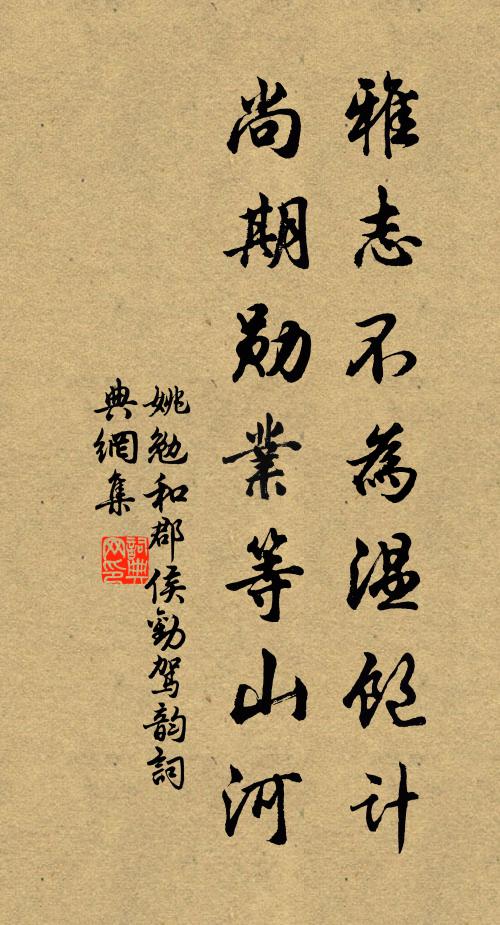 雅志不為溫飽計
尚期勋業等山河
姚勉和郡侯勸駕韵詞
典網集
詞典
网印